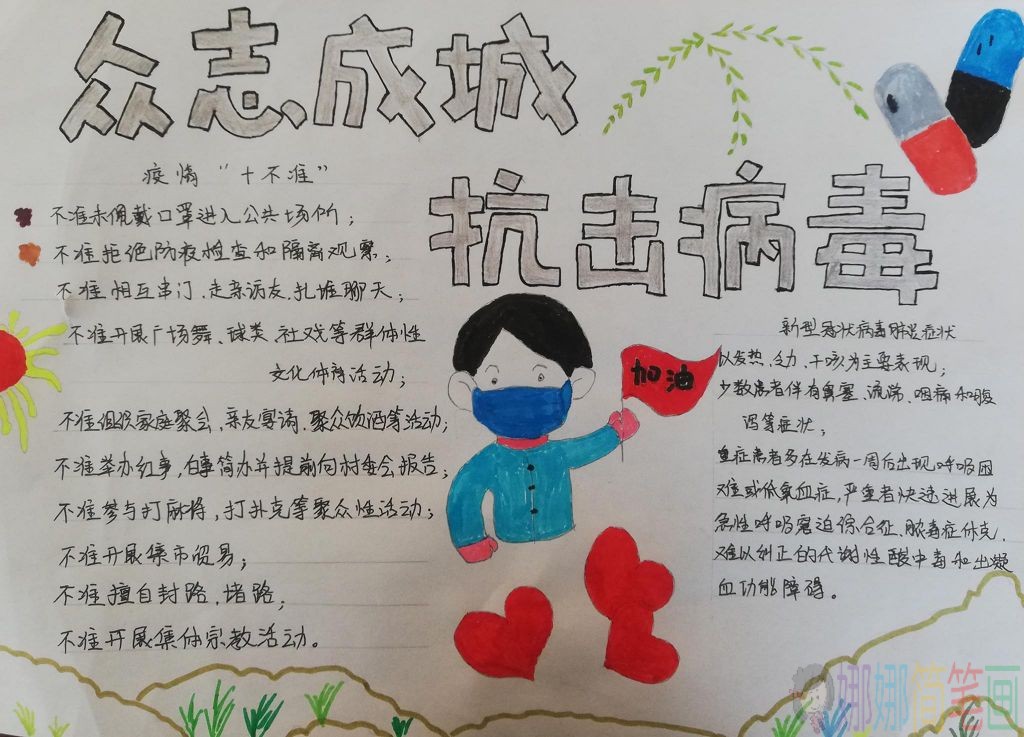 众志成城
抗击病毒
疫情“十不准”
不准未佩戴口罩进入公共场所；
不准拒绝防疫检查和隔离观察；
不准相互串门、走亲访友、扎堆聊天；
不准开展广场舞、球类、社戏等群体性
文化体育活动；
不准组织家庭聚会，亲友宴请、聚众饮酒等活动；
不准举办红事，白事简办并提前向村委会报告；
不准参与打麻将，打扑克等聚众性活动；
不准开展集市贸易；
不准擅自封路、堵路；
不准开展集体宗教活动。
加油
新型冠状病毒肺炎症状
以发热、乏力、干咳为主要表现；
少数患者伴有鼻塞、流涕、咽痛和腹
泻等症状；
重症患者多在发病一周后出现呼吸困
难或低氧血症，严重者快速进展为
急性呼吸窘迫综合征、脓毒症休克、
难以纠正的代谢性酸中毒和出凝
血功能障碍。
娜娜简笔画